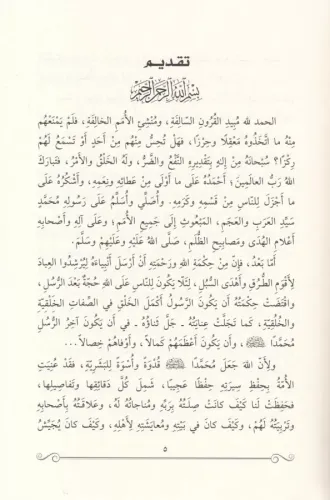 تقديم
بسم الله الرحمن الرحيم
الحمد لله مُبِيدِ القُرونِ السَّالِفَةِ، ومُنْشِئِ الأُمَمِ الخَالِفَةِ، فَلَمْ يَمْنَعْهُم
مِنْهُ ما اتَّخَذُوهُ مَعْقِلًا وحِرْزًا، فهَلْ تُحِسُّ مِنْهُم مِنْ أَحَدٍ أَوْ تَسْمَعُ لَهُمْ
رِكْزًا؟ سُبْحانَهُ مِنْ إلهٍ بِتَقْدِيرِهِ النَّفْعُ والضَّرُّ، ولَهُ الخَلْقُ والأَمْرُ، فَتَبارَكَ
اللهُ ربُّ العالمِينَ؛ أَحْمَدُهُ على ما أَوْلَى مِنْ عَطائِهِ ونِعَمِهِ، وأَشْكُرُهُ على
ما أَجْزَلَ لِلنَّاسِ مِنْ قِسَمِهِ وكَرَمِهِ. وأُصَلِّي وأُسَلِّمُ على رَسُولِهِ مُحَمَّدٍ
سَيِّدِ العَرَبِ والعَجَمِ، المَبْعُوثِ إلى جَمِيعِ الأُمَمِ، وعَلَى آلِهِ وأَصْحابِهِ
أَعْلامِ الهُدَى ومَصابِيحِ الظُّلَمِ، صَلَّى اللهُ عَلَيْهِ وعَلَيْهِمْ وسَلَّمَ.
أَمَّا بَعْدُ، فإنَّ مِنْ حِكْمَةِ اللهِ ورَحْمَتِهِ أَنْ أَرْسَلَ أَنْبِياءَهُ لِيُرْشِدُوا العِبادَ
لِأَقْوَمِ الطُّرُقِ وأَهْدَى السُّبُلِ، لِئَلَّا يَكُونَ لِلنَّاسِ على اللهِ حُجَّةٌ بَعْدَ الرُّسُلِ،
واقْتَضَتْ حِكْمَتُهُ أَنْ يَكُونَ الرَّسُولُ أَكْمَلَ الخَلْقِ في الصِّفاتِ الخَلْقِيَّةِ
والخُلُقِيَّةِ، كما تَجَلَّتْ عِنايَتُهُ ـ جَلَّ ثَناؤُهُ ـ في أَنْ يَكُونَ آخِرُ الرُّسُلِ
مُحَمَّدًا ﷺ، وأَنْ يَكُونَ أَعْظَمَهُمْ كَمالًا، وأَوْفاهُمْ خِصالًا...
ولأَنَّ اللهَ جَعَلَ مُحَمَّدًا ﷺ قُدْوَةً وأُسْوَةً لِلبَشَرِيَّةِ، فقَدْ عُنِيَتِ
الأُمَّةُ بِحِفْظِ سِيرَتِهِ حِفْظًا عَجِيبًا، شَمِلَ كُلَّ دَقائِقِها وتَفاصِيلِها،
فحَفِظَتْ لَنا كَيْفَ كانَتْ صِلَتُهُ بِرَبِّهِ ومُناجاتُهُ لَهُ، وعَلاقَتُهُ بأَصْحابِهِ
وتَرْبِيَتُهُ لَهُمْ، وكَيْفَ كانَ في بَيْتِهِ ومُعايَشَتِهِ لِأَهْلِهِ، وكَيْفَ كانَ يُجَيِّشُ
٥